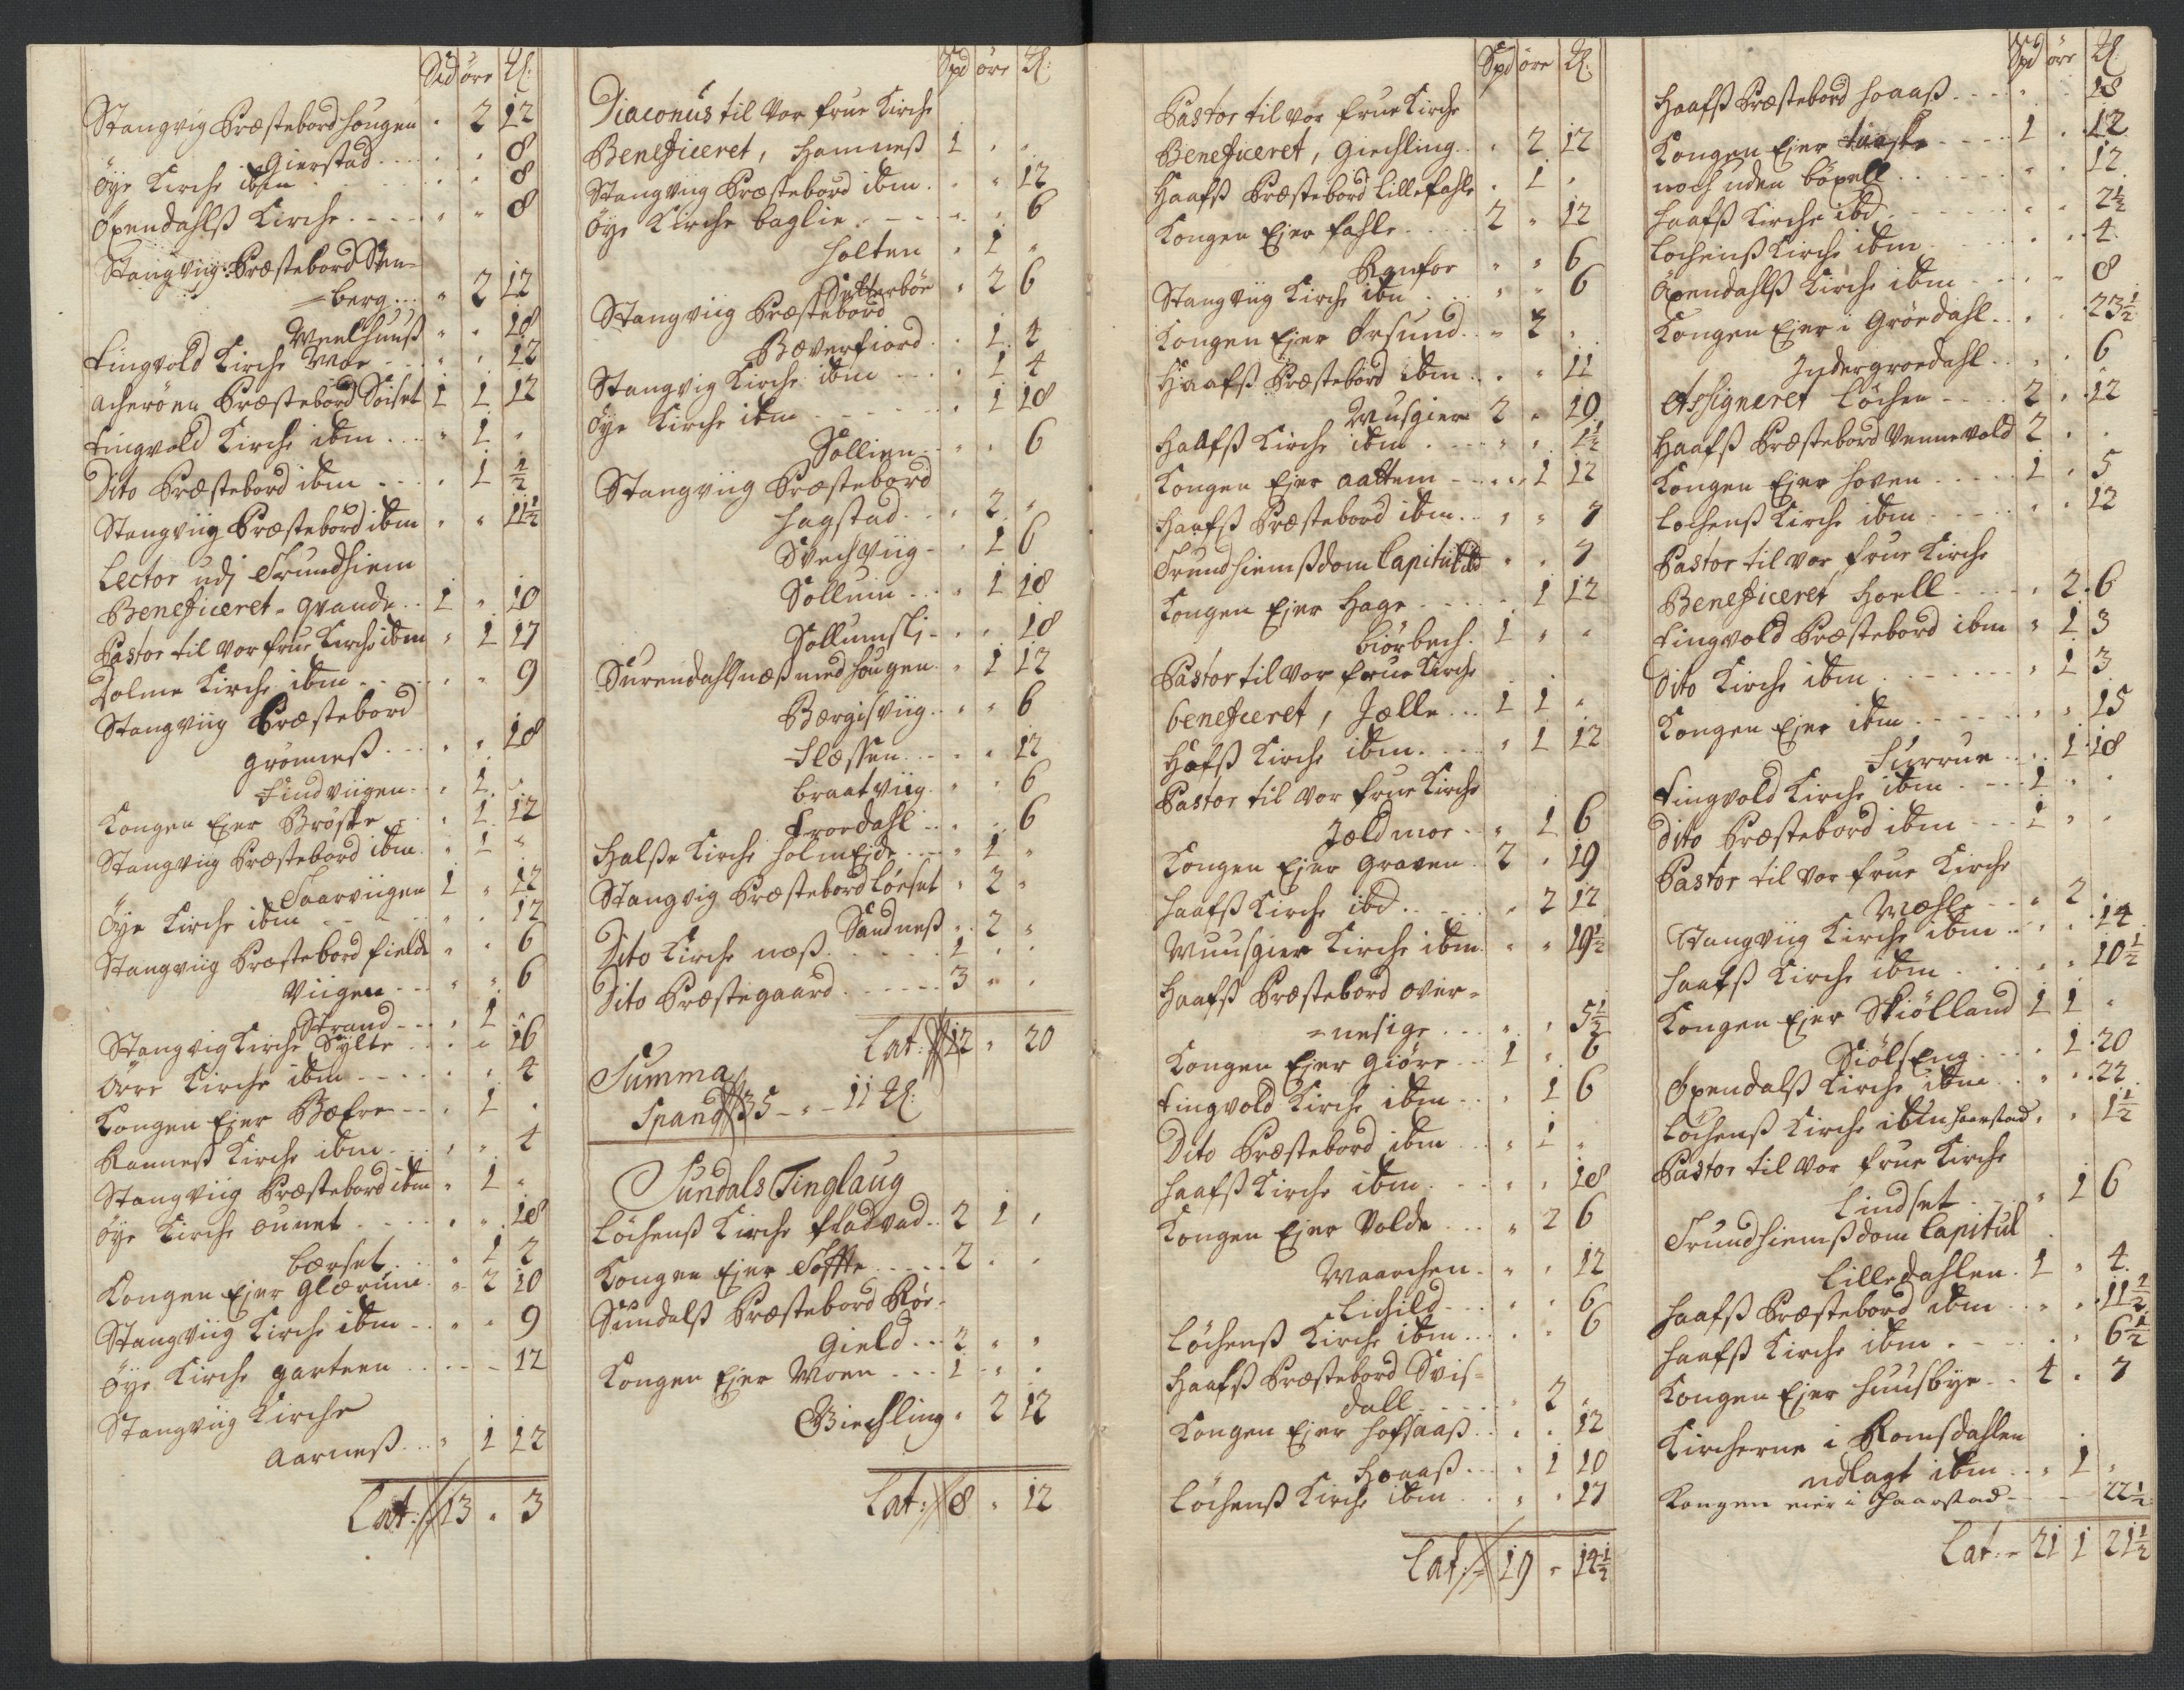 Spd öre ℔:
Stangvig Præstebord Hougen " 2 12
Gierstad " " 8
Öye Kirche ibm " " 8
Öxendahlß Kirche " " 8
Stangviig Præstebord Sten=
=berg " 2 12
Meelhuuß " " 18
Tingvold Kirche Moe " " 12
Acheröen Præstebord Söiset 1 1 12
Tingvold Kirche ibm " 1 "
Dito Præstebord ibm " 1 ½
Stangviig Præstebord ibm " " 11½
Lector udj Trundhiem
Beneficeret Qvande 1 " 10
Pastor til vor frue Kirche ibm " 1 17
Dolme Kirche ibm " " 9
Stangviig Præstebord
Grönneß " " 18
Findviigen " 1 "
Kongen Ejer Bröske " 1 12
Stangviig Præstebord ibm " 1 "
Saarviigen 1 " 12
Öye Kirche ibm " " 12
Stangviig Præstebord Fielde " " 6
Viigen " " 6
Strand " 1 "
Stangvig Kirche Sylte " " 16
Övre Kirche ibm " " 4
Kongen Ejer Bæfre " 1 "
Ranneß Kirche ibm " " 4
Stangviig Præstebord ibm " 1 "
Öye Kirche Ounet " " 18
Bærset " 1 2
Kongen Ejer Glærum " 2 10
Stangviig Kirche ibm " " 9
Öye Kirche Garteen " " 12
Stangviig Kirche
Aarneß " 1 12
Lat: 13 " 3
Spd öre ℔:
Diaconus til Vor frue Kirche
Beneficeret, Hamneß 1 " "
Stangviig Præstebord ibm " " 12
Öye Kirche Baglie " " 6
Holten " 1 "
Sætterböe " 2 6
Stangviig Præstebord
Bæverfiord " 1 4
Stangvig Kirche ibm " 1 4
Öye Kirche ibm " 1 18
Sollien " " 6
Stangviig Præstebord
Hagstad " 2 "
Svechviig " 1 6
Sollum " 1 18
Sollumslj " " 18
Surendahlsnæß med Hougen " 1 12
Bærgisviig " " 6
Slæssen " " 12
Braatviig " " 6
Troedahl " " 6
Halße Kirche Holmejde " 1 "
Stangvig Præstebord Löeset " 2 "
Sandneß " 2 "
Dito Kirche næß 1 " "
Dito Præstegaard 3 " "
Lat: 12 " 20
Summa
Spand 35 - " - 11 ℔:
Sundals Tinglaug
Löchenß Kirche Fladvad 2 1 "
Kongen Ejer Toffte 2 " "
Sundalß Præstebord Röe-
Gield 2 " "
Kongen Ejer Moen 1 " "
Giechling " 2 12
Lat: 8 " 12
Spd öre ℔:
Pastor til vor frue Kirche
Beneficeret, Giechling " 2 12
Haafß Præstebord Lillefahle " 1 "
Kongen Ejer Fahle 2 " 12
Ranfoe " " 6
Stangviig Kirche ibm " " 6
Kongen Ejer Örsund " 2 "
Haafß Præstebord ibm " " 11
Musgier 2 " 19
Haafß Kirche ibm " " 1½
Kongen Ejer Aattem " 1 12
Haafß Præstebord ibm " " 7
Trundhiemß dom Capitul ibd " " 7
Kongen Ejer Hage " 1 12
Biörbech 1 " "
Pastor til vor frue Kirche
beneficeret, Jælle 1 1 "
Hafß Kirche ibm " 1 12
Pastor til vor frue Kirche
Jældmoe " 1 6
Kongen Ejer Graven 2 " 19
Haafß Kirche ibd " 2 12
Muusgier Kirche ibm " " 19½
Haafß Præstebord over=
=nesige " " 5½
Kongen Ejer Giöre 1 " 6
Tingvold Kirche ibm " 1 6
Dito Præstebord ibm " 1 "
Haafß Kirche ibm " " 18
Kongen Ejer Volde " 2 6
Maarchen " " 12
Lichild " " 6
Löchenß Kirche ibm " " 6
Haafß Præstebord Svis=
dall " 2 "
Kongen Ejer Hofsaaß " " 12
Hoaaß " 1 10
Löchenß Kirche ibm " " 17
Lat: 19 " 14½
Spd öre ℔
Haafß Præstebord Hoaaß " " 18
Kongen Ejer Taaske 1 " 12
noch uden böxell " " 12
Haafß Kirche ibd " " 2½
Lochenß Kirche ibm " " 4
Öxendahlß Kirche ibm " " 8
Kongen Ejer i Gröedahl " " 23½
Indergroedahl " " 6
Assigneret Löchen 2 " 12
Haafß Præstebord Vennevold 2 " "
Kongen Ejer Hoven 1 " 5
Lochenß Kirche ibm " " 12
Pastor til vor frue Kirche
Beneficeret Hoell " 2 6
Tingvold Præstebord ibm " 1 3
Dito Kirche ibm " 1 3
Kongen Ejer ibm " " 15
Furrue " 1 18
Tingvold Kirche ibm 1 " "
Dito Præstebord ibm 1 " "
Pastor til vor frue Kirche
Mæhle " 2 "
Stangviig Kirche ibm " " 14
Haafß Kirche ibm " " 10½
Kongen Ejer Skiölland 1 1 "
Siölseng " 1 20
Öxendalß Kirche ibm " " 22
Löchenß Kirche ibm Haarstad " " 1½
Pastor til vor frue Kirche
Lindset " 1 6
Trundhiemß dom Capitul
Lilledahlen 1 " 4
Haafß Præstebord ibm " " 11½
Haafß Kirche ibm " " 6½
Kongen Ejer Huusbye 4 " 7
Kircherne i Romsdahlen
udlagt ibm " 1 "
Kongen eier i Haarstad 22½
Lat: 21 1 21½